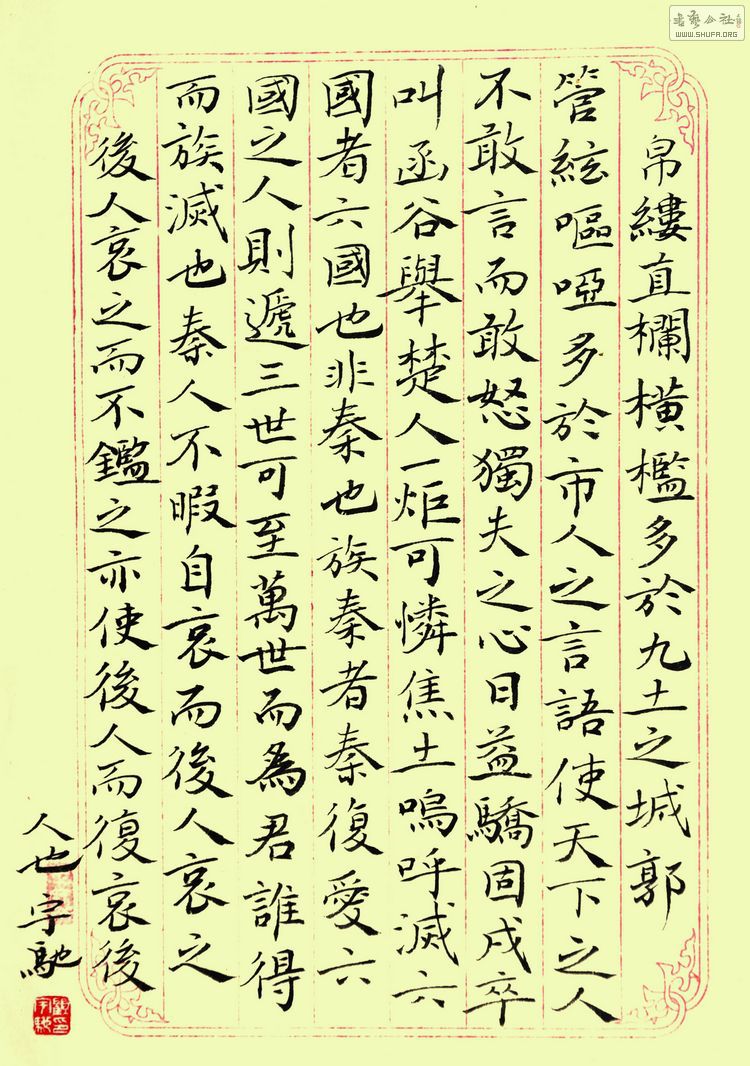 帛縷直欄橫檻多於九土之城郭
管絃嘔啞多於市人之言語使天下之人
不敢言而敢怒獨夫之心日益驕固戍卒
叫函谷舉楚人一炬可憐焦土嗚呼滅六
國者六國也非秦也族秦者秦復愛六
國之人則遞三世可至萬世而為君誰得
而族滅也秦人不暇自哀而後人哀之
後人哀之而不鑑之亦使後人而復哀後
人也 字馳
書藝公社
WWW.SHUFA.ORG